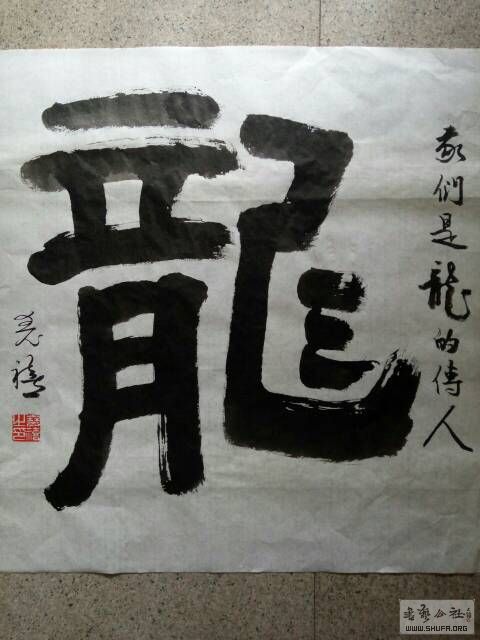 我們是龍的傳人
龍
書藝公社
WWW.SHUFA.ORG